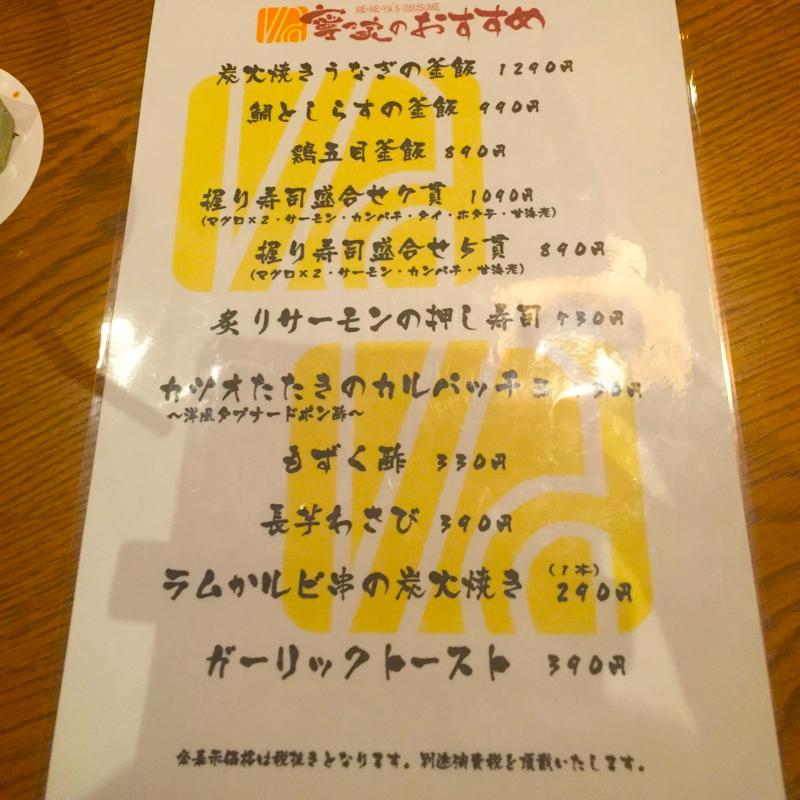 NE-NE-YA'S OSUSUME
寧々家のおすすめ
炭火焼きうなぎの釜飯 1290円
鯛としらすの釜飯 990円
鶏五目釜飯 890円
握り寿司盛合せ7貫 1090円
(マグロ×2・サーモン・カンパチ・タイ・ホタテ・甘海老)
握り寿司盛合せ5貫 890円
(マグロ×2・サーモン・カンパチ・甘海老)
炙りサーモンの押し寿司 730円
カツオたたきのカルパッチョ
～洋風タプナードポン酢～
もずく酢 330円
長芋わさび 390円
ラムカルビ串の炭火焼き (1本) 290円
ガーリックトースト 390円
※表示価格は税抜きとなります。別途消費税を頂戴いたします。